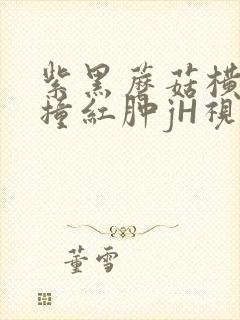 紫黑蘑菇横
撞紅肿jH視
董雪